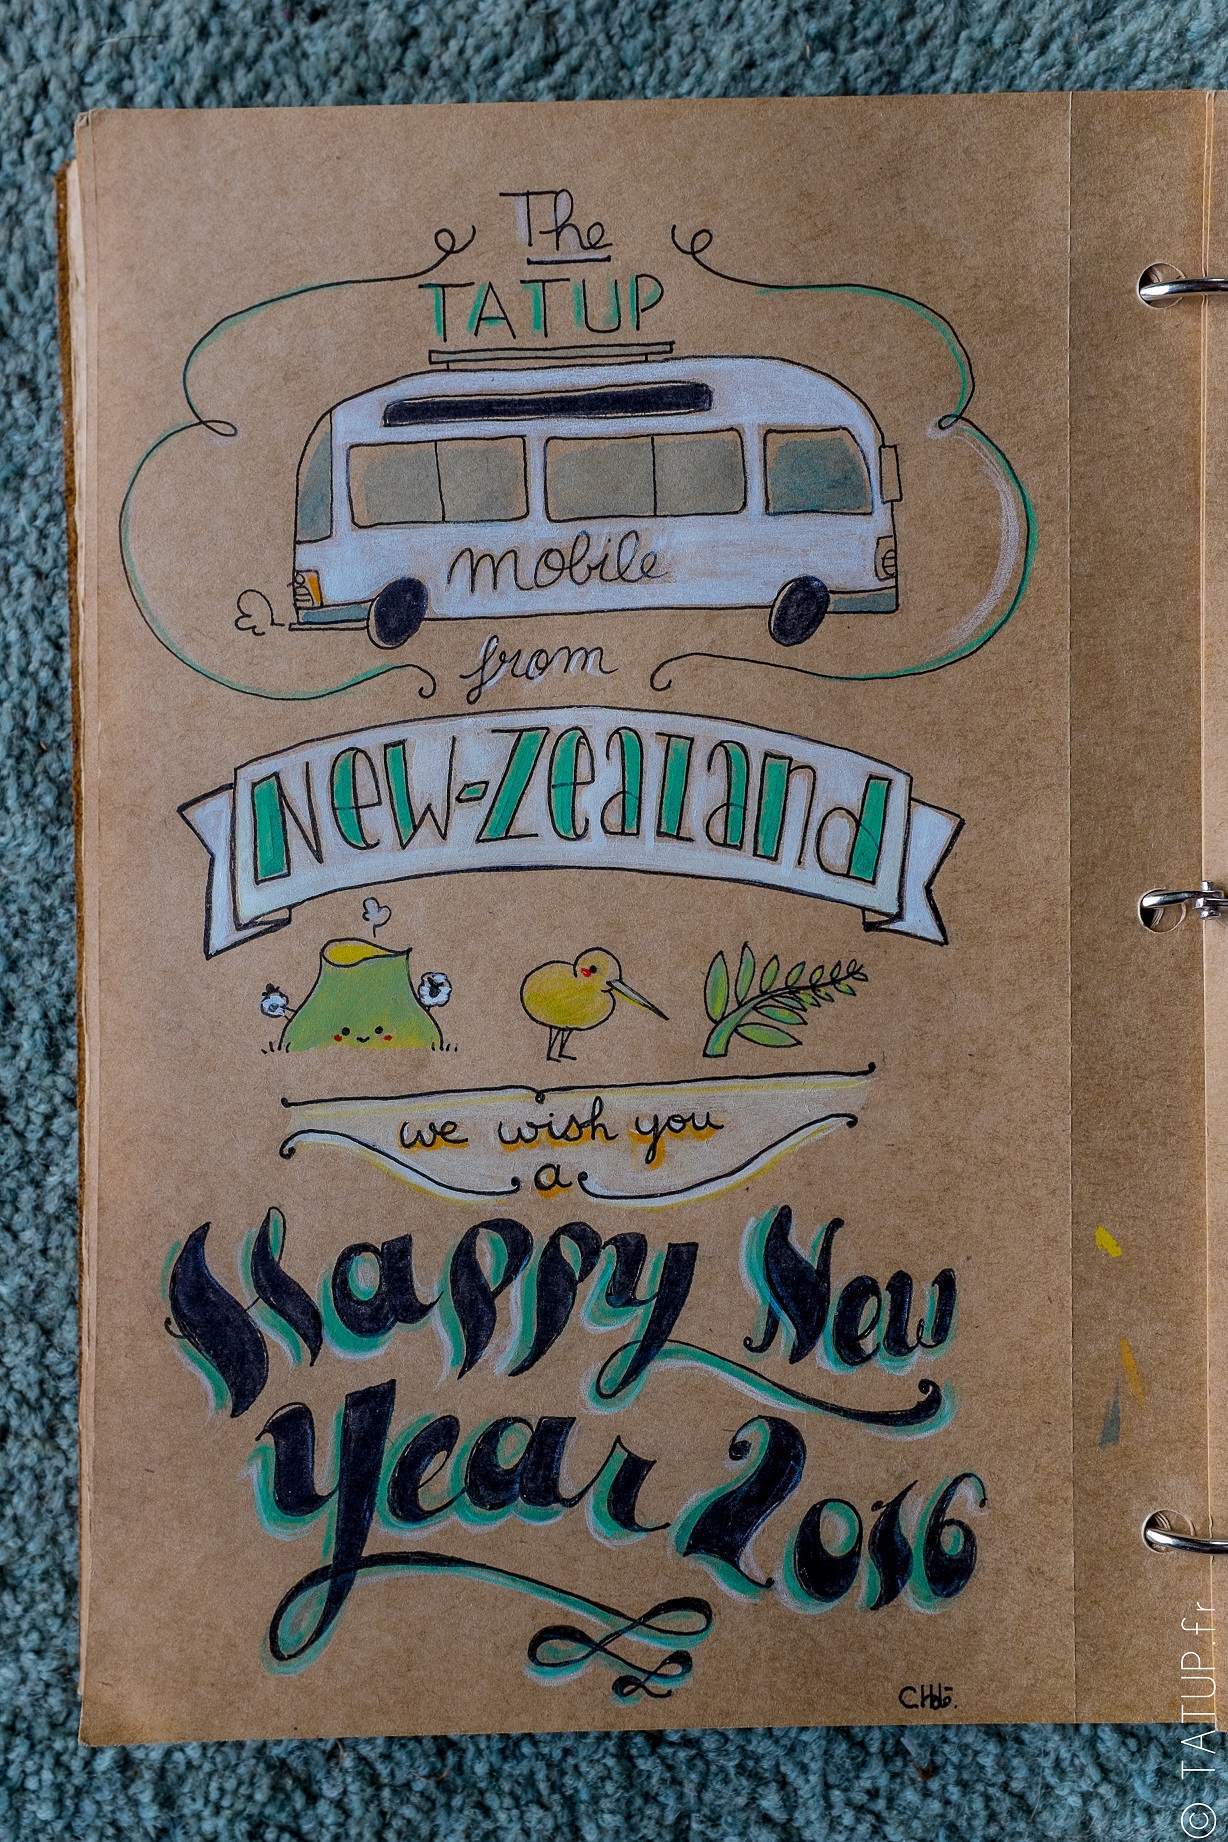 The
TATUP
mobile
from
New-Zealand
we wish you
a
Happy New
Year 2016
© TATUP.fr